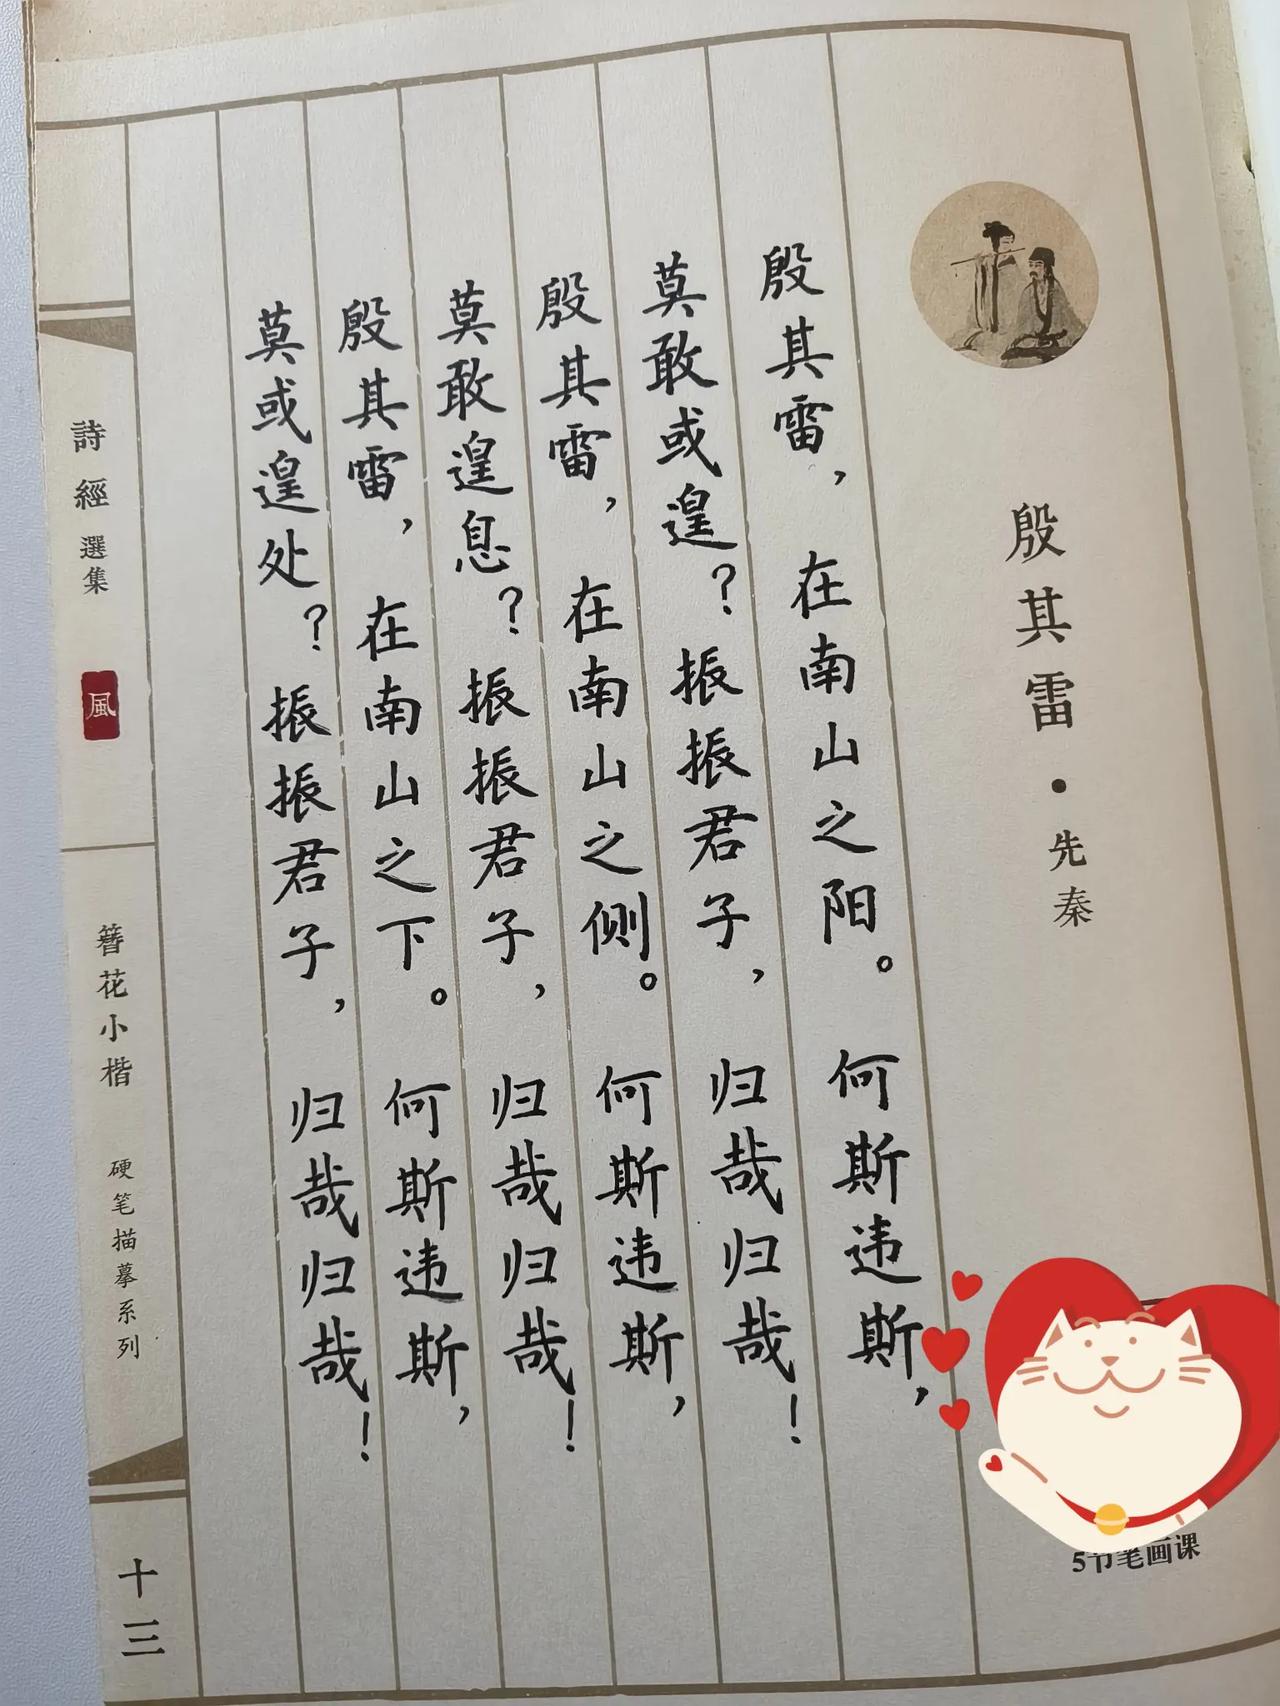 殷其雷·先秦
殷其雷，在南山之阳。何斯违斯，
莫敢或遑？振振君子，归哉归哉！
殷其雷，在南山之侧。何斯违斯，
莫敢遑息？振振君子，归哉归哉！
殷其雷，在南山之下。何斯违斯，
莫或遑处？振振君子，归哉归哉！
詩經選集
風
簪花小楷
硬笔描摹系列
十三
5节笔画课